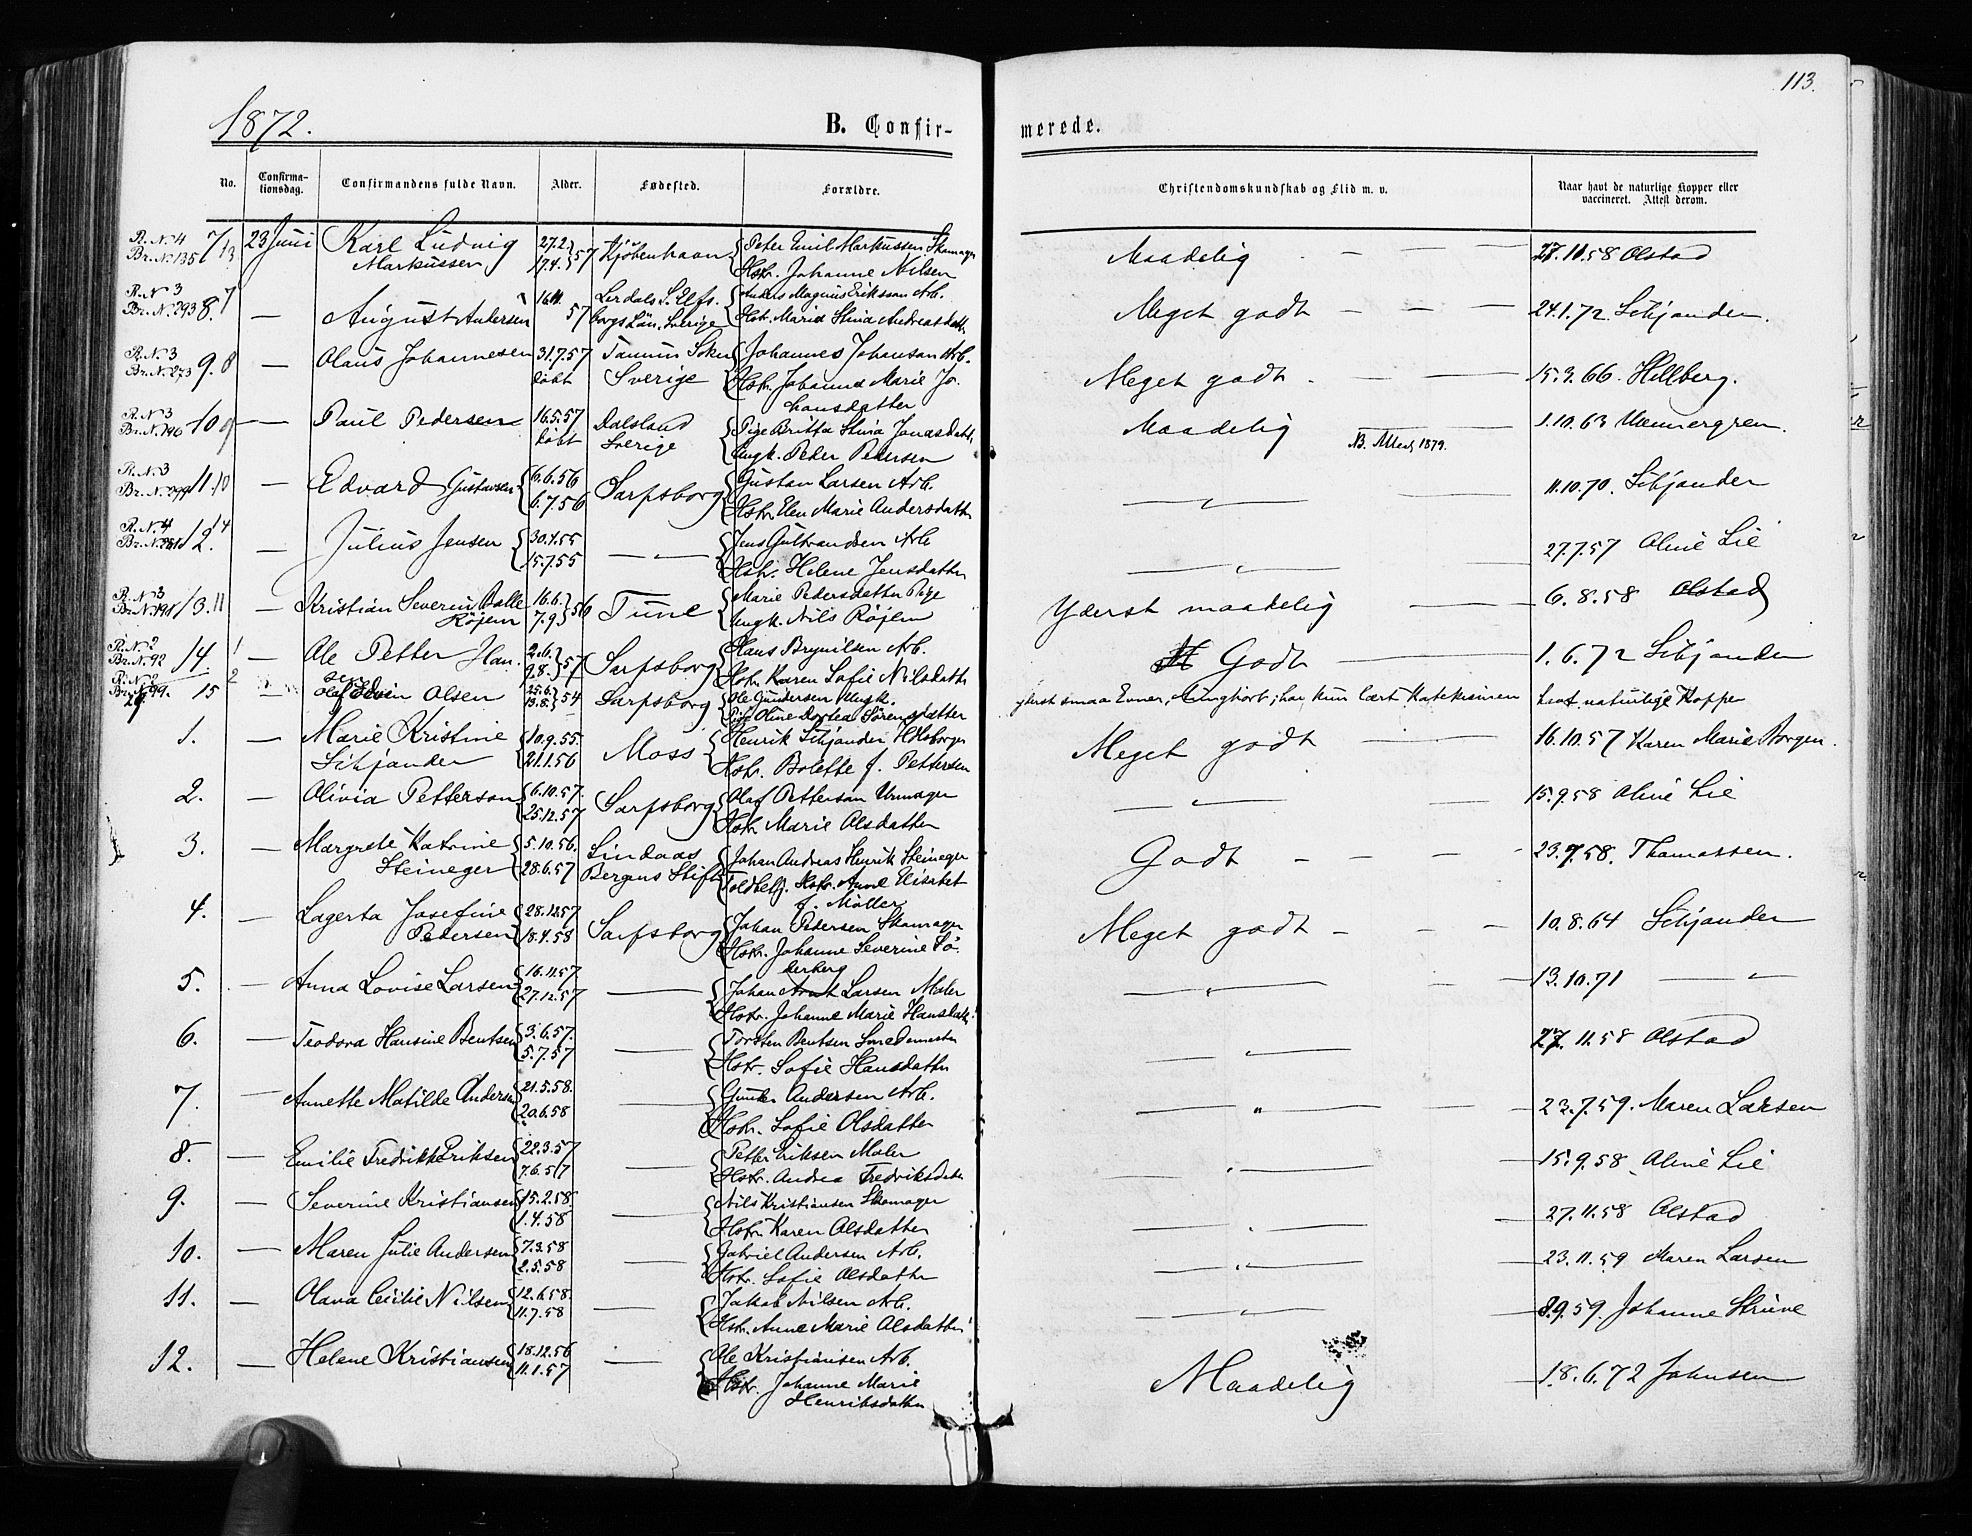 113.
1872.
B. Confir-
merede.
No.
Confirma-
tionsdag.
Confirmandens fulde Navn.
Alder.
Fødested.
Forældre.
Christendomskundskab og Flid m. v.
Naar havt de naturlige Kopper eller
vaccineret. Attest derom.
R. N. 4 7 23 Juni Karl Ludvig 27.2. Kjøbenhavn Peter Emil Markussen Skomager Maadelig 27.11.58 Olstad
Br. N. 135 13 Markussen 17.4. 57 Hstr. Johanne Nilsen
R. N. 3 7 Lerdals S. Elfs- Anders Magnus Eriksson Arb.
Br. N. 293 8 — August Andersen 57 borgs Län, Sverige Hstr. Maria Stina Andreasdatt. Meget godt — — 24.1.72 Sihjander.
R. N. 3 9. 8 — Olaus Johannesen 31.7.57 Tanum Sokn Johannes Johansan Arb. Meget godt. — — 15.3.66 Hellberg.
Br. N. 273 døbt Sverige Hstr. Johanna Marie Jo-
hansdatter
R. N. 3 10 9 — Paul Pedersen 16.5.57 Dalsland Pige Britta Stina Jonasdatt. Maadelig 1.10.63 Wennergren.
Br. N. 196 døbt Sverige Ungk. Peder Pedersen NB. Attest, 1879.
R. N. 3 11. 10 — Edvard Gustavsen 6.6.56 Sarpsborg Gustav Larsen Arb. — „ — 11.10.70. Sihjander
Br. N. 299 6.7.56 Hstr. Elen Marie Andersdatter
R. N. 4 12. 14 — Julius Jensen 30.4.55 — „ — Jens Gulbrandsen Arb — „ — 27.7.57 Oline Lie
15.7.55 Hstr. Helene Jensdatter
R. N. 3 13. 11 — Kristian Severin Balle 16.6. 56 Tune Marie Pedersdatter Pige Yderst maadelig — 6.8.58 Olstad
Br. N. 191 Røjem 7.9. Ungk. Nils Røjem
R. N. 2 14. 1 — Ole Petter Han- 2.6. 57 Sarpsborg Hans Brynilsen Arb. Godt — 1.6.72 Sihjander
Br. N. 92 sen 9.8. Hstr. Karen Sofie Nilsdatter
Br. N. 99. 15 2 — Olaf Edvin Olsen 25.6. 54 Sarpsborg Ole Gundersen Ungk. yderst smaa Evner, tunghørt; har kun lært Katekismen havt naturlige Kopper
13.8. Pige Oline Dortea Sørensdatter
1. — Marie Kristine 10.9.55. Moss Henrik Sihjander Meget godt 16.10.57 Karen Marie Borgen.
Sihjander 21.1.56 Hstr. Bolette f. Pettersen
2. — Olivia Petterson 6.10.57. Sarpsborg Olaf Petterson Urmager — „ — 15.9.58 Oline Lie
25.12.57 Hstr. Marie Olsdatter
3. — Margrete Katrine 5.10.56. Lindaas Johan Andreas Henrik Steineger Godt — — — 23.9.58. Thomassen.
Steineger 28.6.57 Bergens Stift Toldbetj. Hstr. Anne Elisabet
f. Møller
4. — Lagerta Josefine 28.12.57 Sarpsborg Johan Pedersen Skomager Meget godt — — — 10.8.64 Sihjander
Pedersen 18.4.58 Hstr. Johanne Severine Sø-
derberg
5. — Anna Lovise Larsen 16.11.57 — Johan Arnt Larsen Maler — „ — 13.10.71 — „
27.12.57 Hstr. Johanne Marie Hansdatt.
6. — Teodora Hansine Bentsen 3.6.57. — Torsten Bentsen Smedemester — „ — 27.11.58 Olstad
5.7.57 Hstr. Sofie Hansdatter
7. — Annette Matilde Andersen 21.5.58. — Gunder Andersen Arb. — „ — 23.7.59. Maren Larsen
20.6.58 Hstr. Sofie Olsdatter
8. — Emilie Fredrikke Eriksen 22.3.57 — Petter Eriksen Maler — „ — 15.9.58 Oline Lie
7.6.57 Hstr. Andrea Fredriksdatter
9. — Severine Kristiansen 15.2.58 — Nils Kristiansen Skomager — „ — 27.11.58 Olstad
1.4.58 Hstr. Karen Olsdatter
10. — Maren Julie Andersen 7.3.58 — Gabriel Andersen Arb. — „ — 23.11.59 Maren Larsen
2.5.58 Hstr. Sofie Olsdatter
11. — Olava Cecilie Nilsen 12.6.58 — Jakob Nilsen Arb. — „ — 8.9.59 Johanne Struve
11.7.58 Hstr. Anne Marie Olsdatter
12. — Helene Kristiansen 18.12.56 — Ole Kristiansen Arb. Maadelig 18.6.72 Johnsen
11.1.57 Hstr. Johanne Marie
Henriksdatter